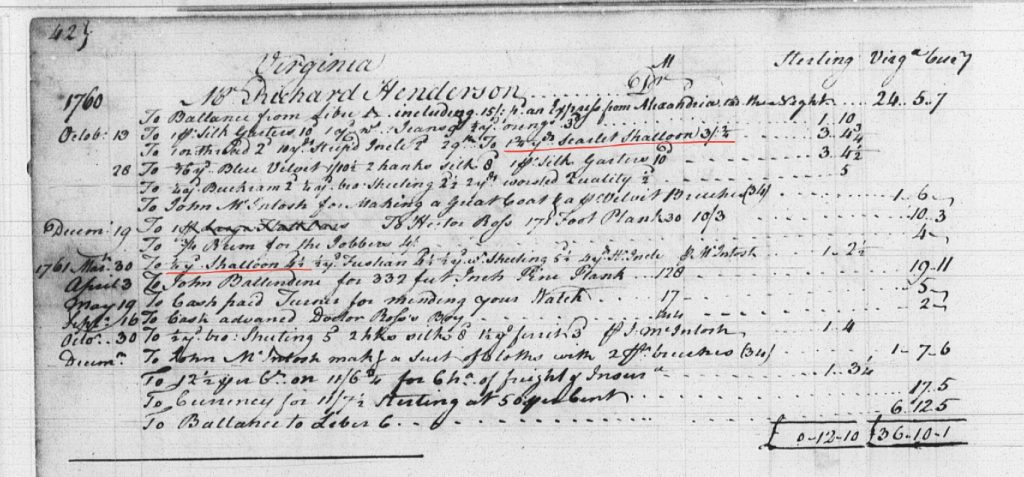 42
Virginia
Sterling Virg^a Curr^y
1760 M^r Richard Henderson D^r
To Ballance from Liber A including 15/ p^d an Express from Alexandria in the Night 24 . 5 . 7
Octob^r 13 To 1 p^r Silk Garters 10 Jeans 1 . 10
To 3^d 10 y^ds Incle 2^d To 1¾ y^ds Scarlet Shalloon 3/½ 3 . 4¾
28 To Blue Velvit 1/10½ 2 hanks silk 8^d 1 p^r Silk Garters 10^d 3 . 4½
To ¼ y^d Buckram 2^d ¼ y^d bro: Sheeting 2½ 2 y^ds worsted Quality ½ 5
To John M^cIntosh for Making a Great Coat & a p^r Velvit Breeches (34) 1 . 6
Decem^r 19 To Hector Ross 178 Foot Plank 30 10/3 10 . 3
To Rum for the Jobbers 4/ 4
1761 Mar: 30 To ½ y^d Shalloon 4½ ½ y^d Fustian Sheeting 5½ 4 y^ds Incle M^cIntosh 1 . 2½
April 3 To John Ballendine for 332 feet Inch Pine Plank 128 19 . 11
May 19 To Cash paid Turner for mending your Watch 17 5
Sept^r 16 To Cash advanced Doctor Ross's Boy 44 2
Octo^r 30 To ½ y^d bro: Sheeting 5^d 2 hks silk 8^d 3^d J. M^cIntosh 1 . 4
Decem^r To John M^cIntosh mak^g a Suit of Cloths with 2 p^r breeches (34) 1 . 7 . 6
To 12½ per C^t on 11/6¼ for Ch^s of freight & Insur^a 1 . 3¼
To Currency for 11/7½ Sterling at 50 per Cent 17 . 5
To Ballance to Liber C 6 . 12 . 5
0-12-10 36-10-1